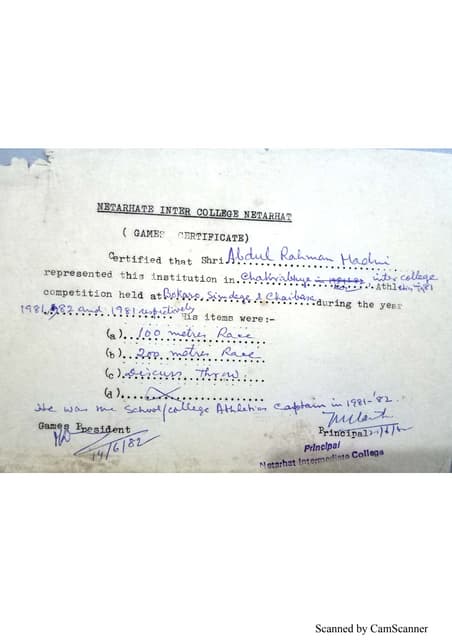 NETARHATE INTER COLLEGE NETARHAT
( GAMES CERTIFICATE)
Certified that Shri Abdul Rahman Madni
represented this institution in inter college
competition held at Bokaro, Simdega & Chaibasa during the year
1981, 82 and 1981 respectively His items were:-
(a) 100 metres Race
(b) 200 metres Race
(c) Discuss Throw
(d)
He was the School/college Athletics Captain in 1981-'82.
Games President Principal
14/6/82
Principal
Netarhat Intermediate College
Scanned by CamScanner